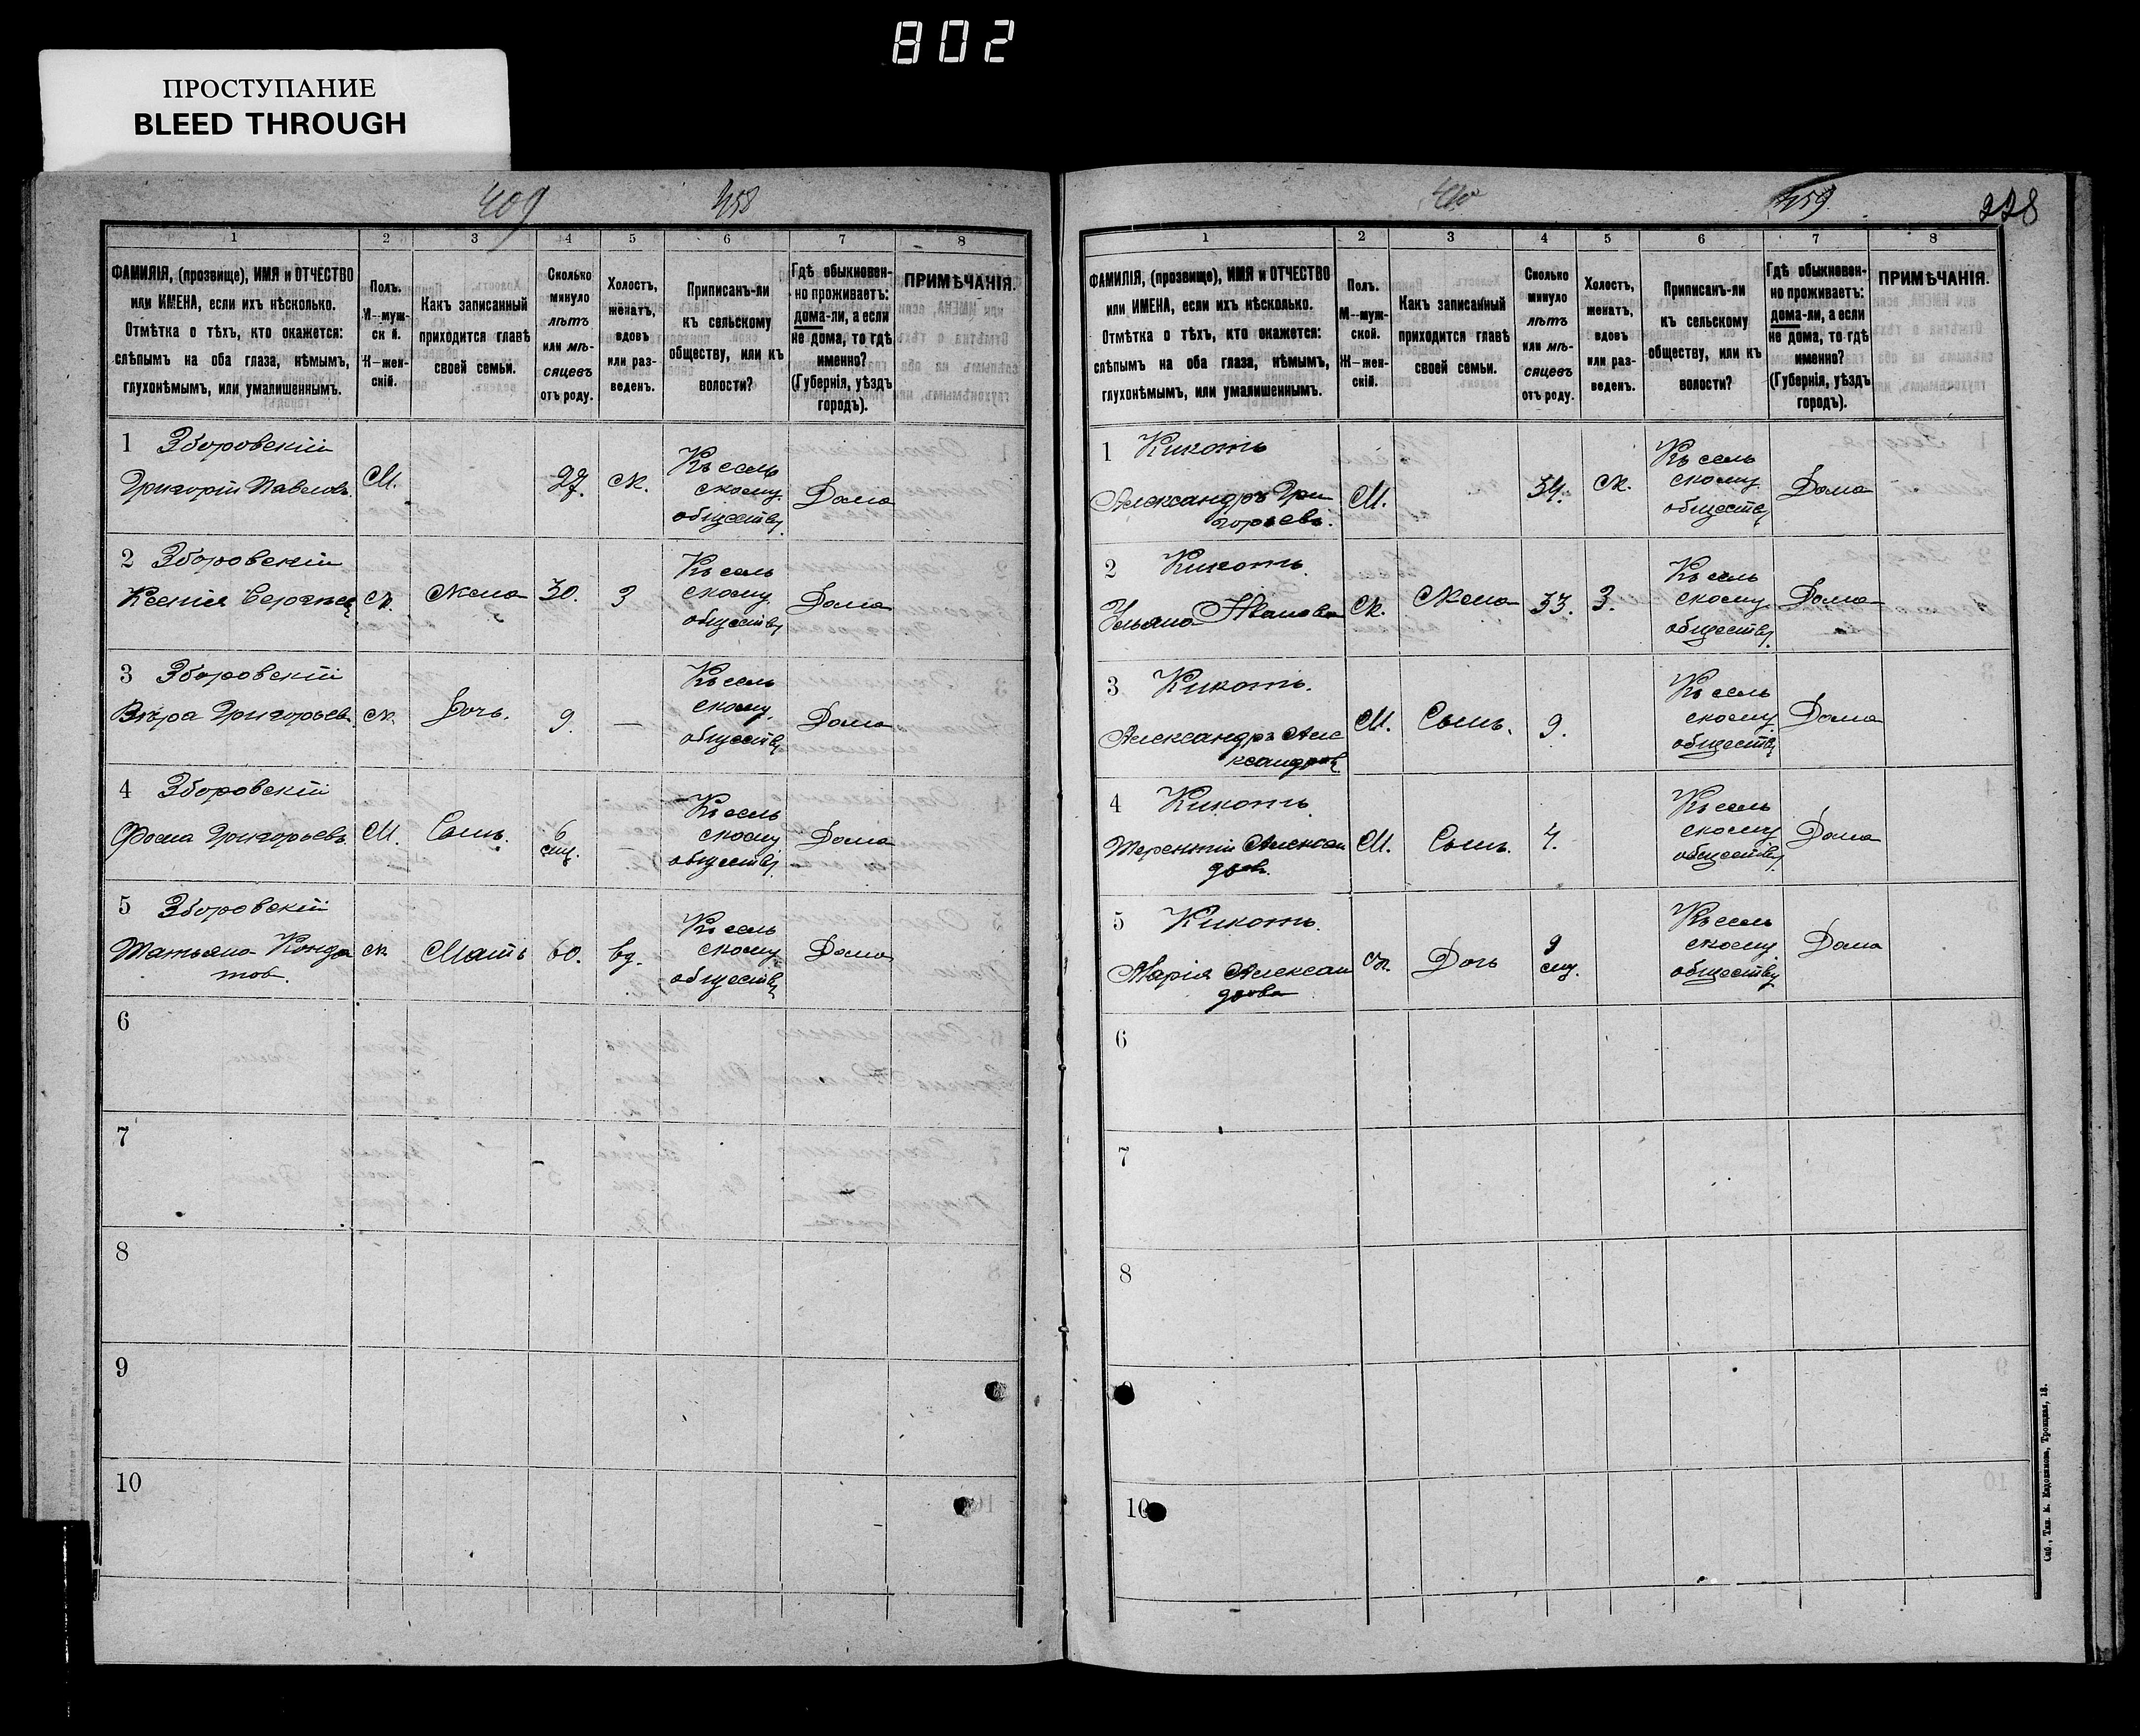 802
ПРОСТУПАНИЕ
BLEED THROUGH
409 458
1 2 3 4 5 6 7 8
ФАМИЛІЯ, (прозвище), ИМЯ и ОТЧЕСТВО
или ИМЕНА, если ихъ нѣсколько.
Отмѣтка о тѣхъ, кто окажется:
слѣпымъ на оба глаза, нѣмымъ,
глухонѣмымъ, или умалишеннымъ.
Полъ.
М--муж-
ск й.
Ж--жен-
скій.
Какъ записанный
приходится главѣ
своей семьи.
Сколько
минуло
лѣтъ
или мѣ-
сяцевъ
отъ роду.
Холостъ,
женатъ,
вдовъ
или раз-
веденъ.
Приписанъ-ли
къ сельскому
обществу, или къ
волости?
Гдѣ обыкновен-
но проживаетъ:
дома-ли, а если
не дома, то гдѣ
именно?
(Губернія, уѣздъ
городъ).
ПРИМѢЧАНІЯ.
1 Зборовскій
Григорій Павловъ. М. 27. Ж. Къ сель
скому
обществу. Дома
2 Зборовскій
Ксенія Сергѣев Ж. Жена 30. З Къ сель
скому
обществу Дома
3 Зборовскій
Вѣра Григорьев. Ж. Дочь. 9. — Къ сель
скому
обществу Дома
4 Зборовскій
Фома Григорьевъ. М. Сынъ. 6
мц. Къ сель
скому
обществу. Дома
5 Зборовскій
Татьяна Кондра
тов. Ж Мать 60. вд. Къ сель
скому
обществу Дома
6
7
8
9
10
459 228
1 2 3 4 5 6 7 8
ФАМИЛІЯ, (прозвище), ИМЯ и ОТЧЕСТВО
или ИМЕНА, если ихъ нѣсколько.
Отмѣтка о тѣхъ, кто окажется:
слѣпымъ на оба глаза, нѣмымъ,
глухонѣмымъ, или умалишеннымъ.
Полъ.
М--муж-
ской.
Ж--жен-
скій.
Какъ записанный
приходится главѣ
своей семьи.
Сколько
минуло
лѣтъ
или мѣ-
сяцевъ
отъ роду.
Холостъ,
женатъ,
вдовъ
или раз-
веденъ.
Приписанъ-ли
къ сельскому
обществу, или къ
волости?
Гдѣ обыкновен-
но проживаетъ:
дома-ли, а если
не дома, то гдѣ
именно?
(Губернія, уѣздъ
городъ).
ПРИМѢЧАНІЯ.
1 Кикоть
Александръ Гри
горьевъ. М. 34. Ж. Къ сель
скому
обществу Дома
2 Кикоть.
Ульяна Иванова Ж. Жена 33. З. Къ сель
скому
обществу. Дома
3 Кикоть.
Александръ Але
ксандров М. Сынъ. 9. Къ сель
скому
обществу Дома
4 Кикоть.
Терентій Алексан
дров. М. Сынъ. 4. Къ сель
скому
обществу. Дома
5 Кикоть.
Марія Алексан
дрова Ж. Дочь 9
мц. Къ сель
скому
обществу Дома
6
7
8
10
Спб., Тип. М. Яздовскаго, Троицкая, 18.